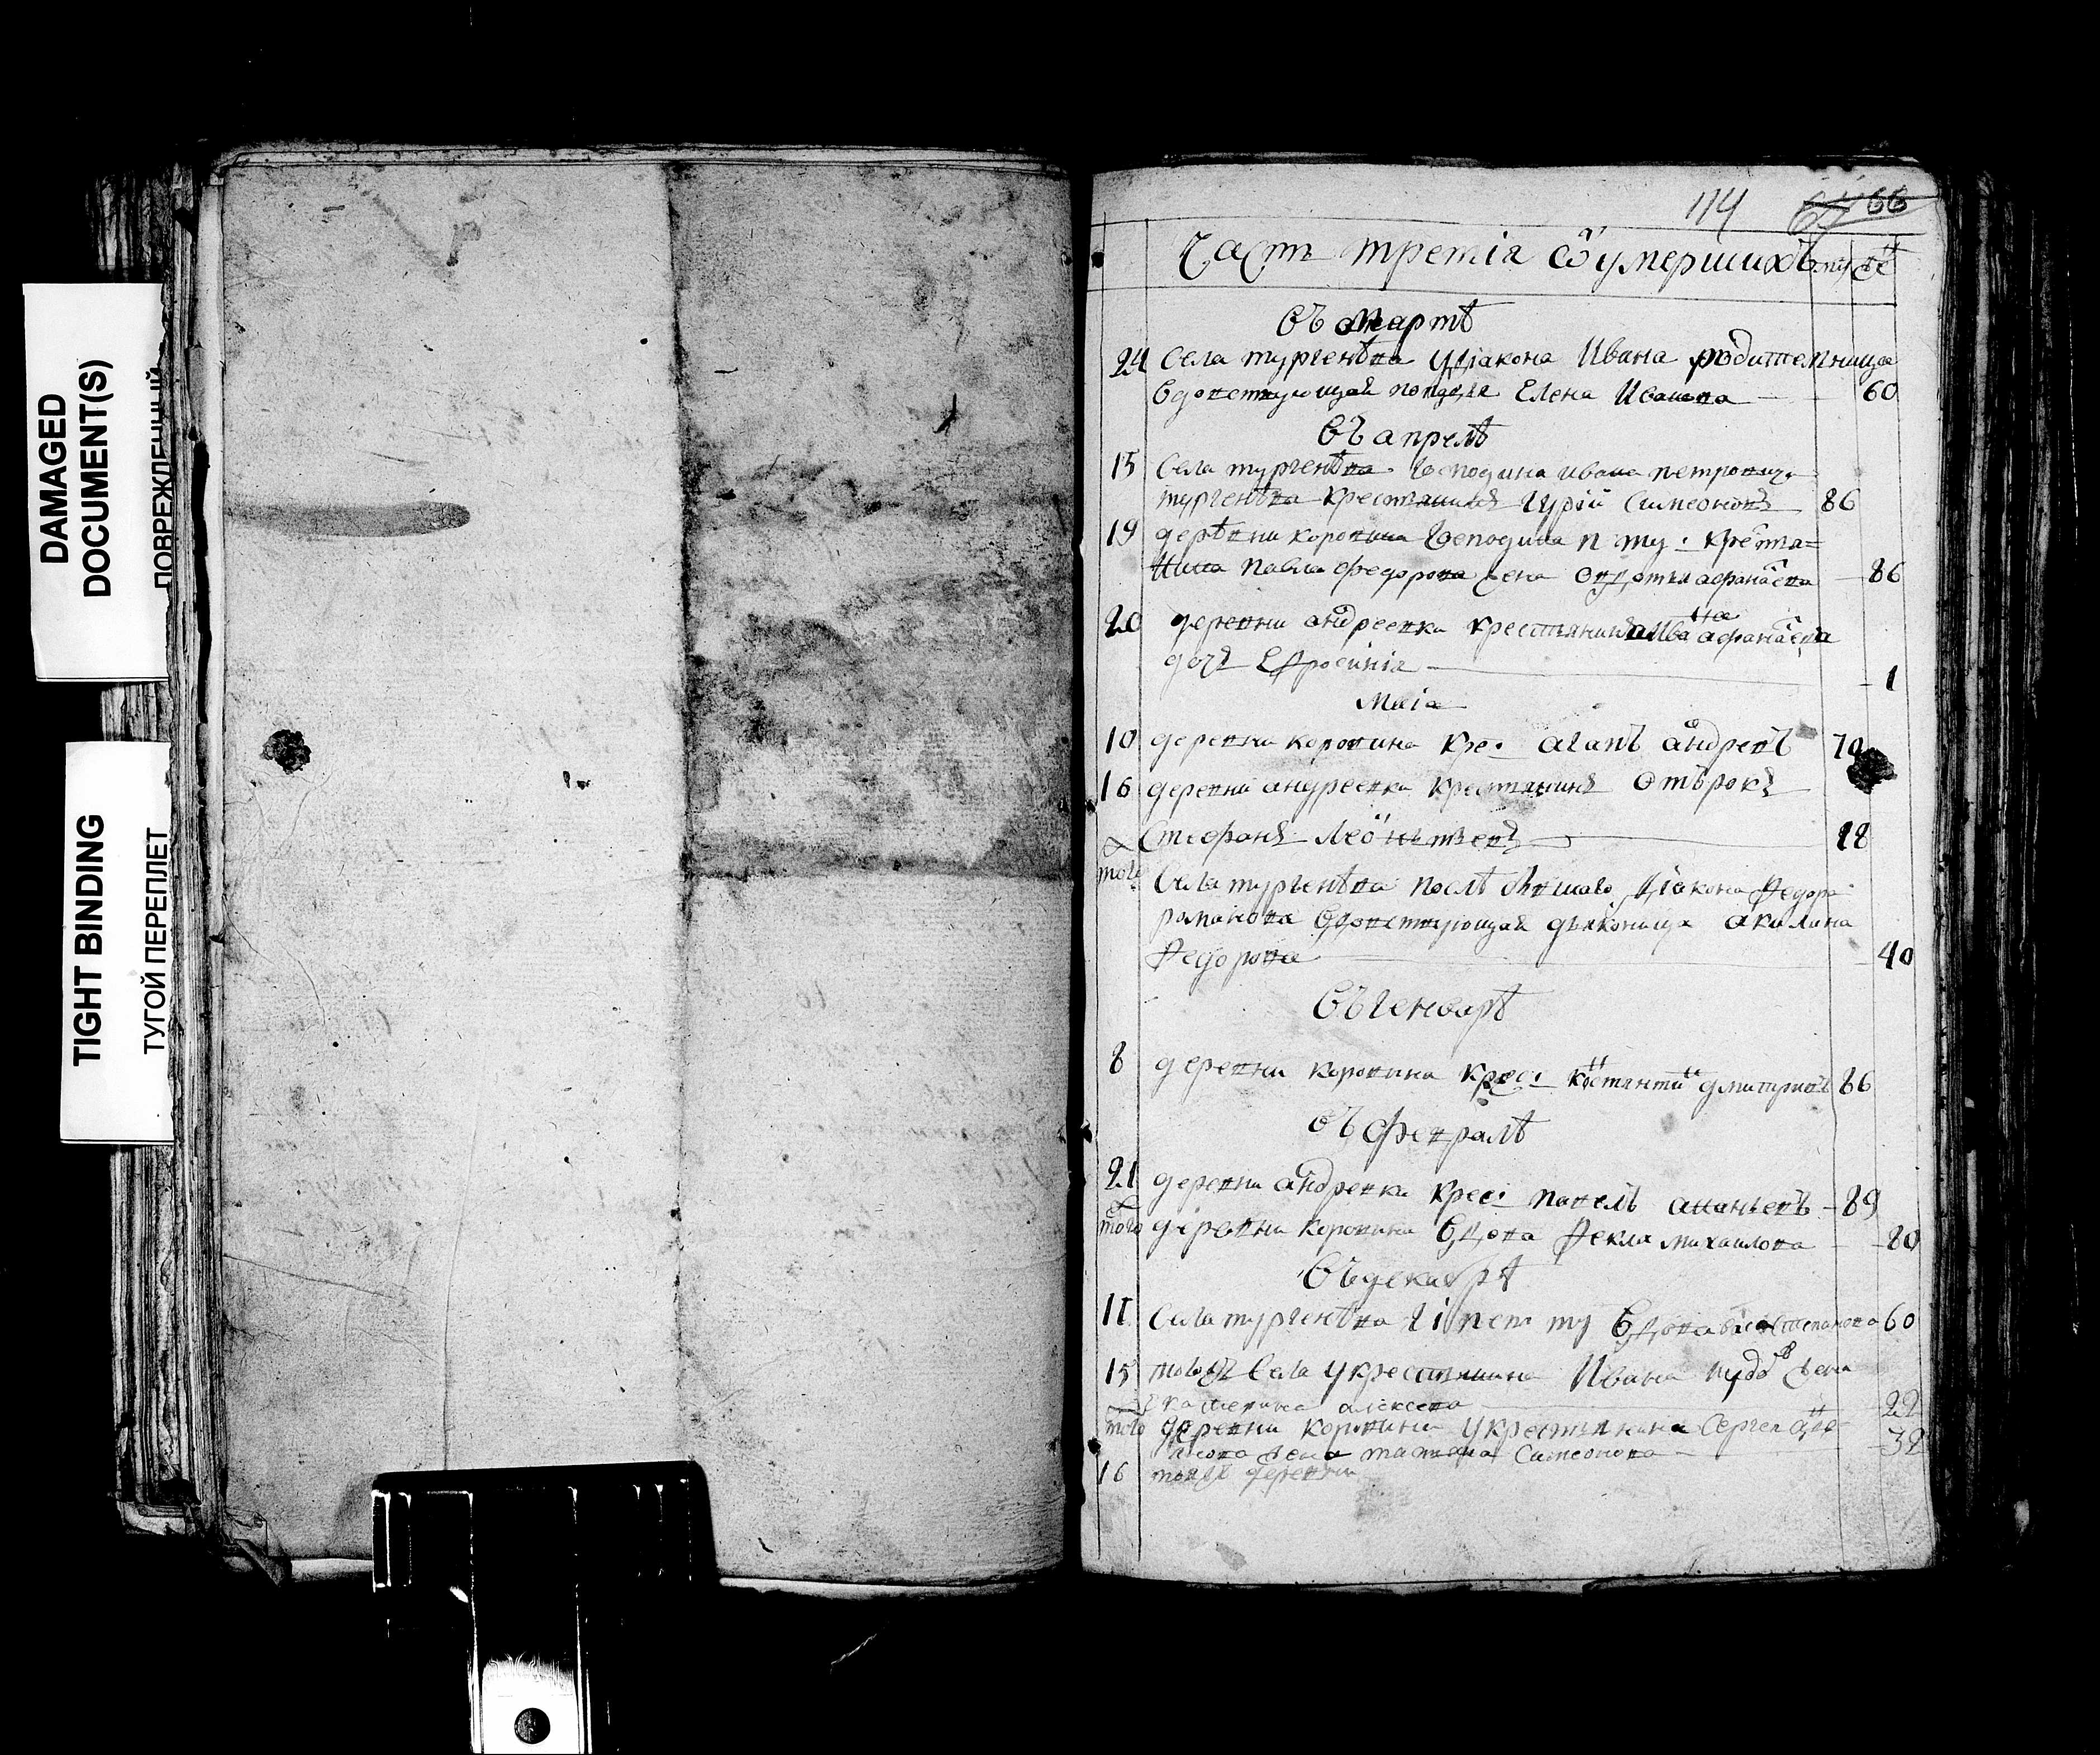 DAMAGED
DOCUMENT(S)
ПОВРЕЖДЕННЫЙ
TIGHT BINDING
ТУГОЙ ПЕРЕПЛЕТ
114 66
Часть третія ѿ умершихъ
въ мартѣ
24 Села тургенѣва удіакона Ивана родителница
вдовствующая попадья Елена Иванова 60
въ апрелѣ
15 Села тургенѣва господина ивана петровича
тургенѣва крестянинъ гурій Симеоновъ 86
19 деревни коровина господина п ту: крестя=
нина павла федорова жена авдотья афанасева 86
20 деревни андреевки крестянина Ивана афанасева
дочь Ефросинія 1
Маіа
10 деревни коровина кре: агапъ андревъ 70
16 деревни андреевки крестянинъ отърокъ
Стефанъ Леонтьевъ 18
того Села тургенѣва послѣ бывшаго діакона Федора
романова вдовствующая дьяконица акилина
Федорова 40
въ генварѣ
8 деревни коровина крес: костянтин дмитриевъ 86
въ февралѣ
21 деревни андревки крес: павелъ ананьевъ 89
того деревни коровина вдова Фекла михаилова 80
въ декабрѣ
11 Села тургенѣва г і пет ту вдова Степанова 60
15 тогожъ Села у крестянина Ивана жена
катерина алексева 22
того деревни коровина у крестянина Сергея
жена татяна Симеонова 32
16 тояжъ деревни